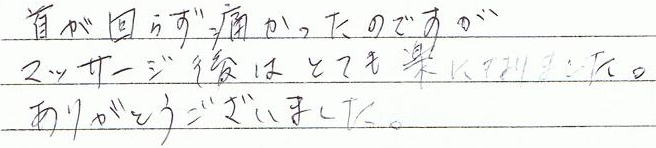 首が回らず痛かったのですが
マッサージ後はとても楽になりました。
ありがとうございました。